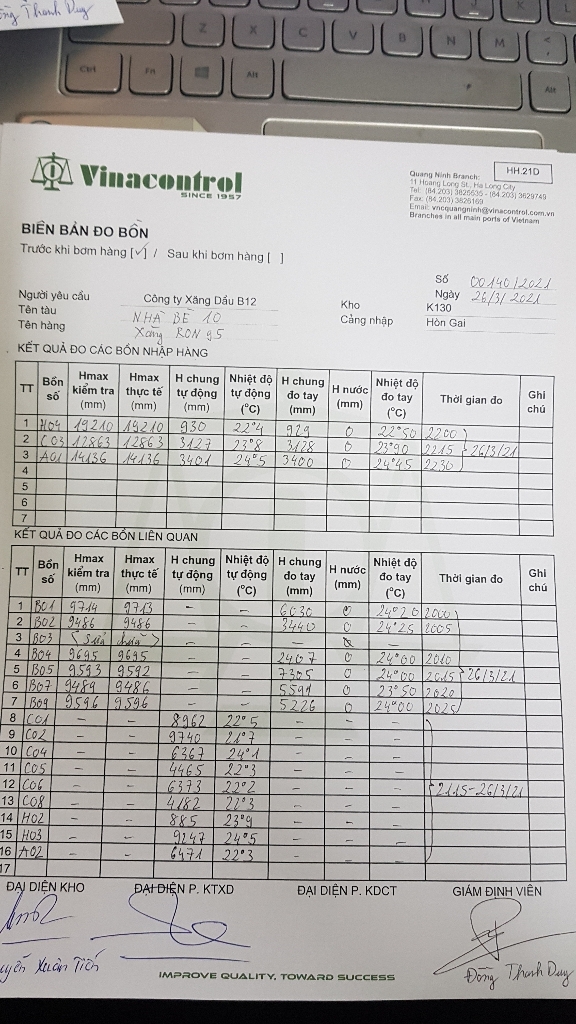 Z X C V B N M
Ctrl Fn Alt Alt
Vinacontrol
SINCE 1957
HH.21D
Quang Ninh Branch:
11 Hoang Long St., Ha Long City
Tel: (84.203) 3825635 - (84.203) 3829749
Fax: (84.203) 3826169
Email: vncquangninh@vinacontrol.com.vn
Branches in all main ports of Vietnam
BIÊN BẢN ĐO BỒN
Trước khi bơm hàng [✓] / Sau khi bơm hàng [ ]
Số 00140/2021
Ngày 26/3/2021
Người yêu cầu Công ty Xăng Dầu B12 Kho K130
Tên tàu NHÀ BÈ 10 Cảng nhập Hòn Gai
Tên hàng Xăng RON 95
KẾT QUẢ ĐO CÁC BỒN NHẬP HÀNG
TT Bồn số Hmax kiểm tra (mm) Hmax thực tế (mm) H chung tự động (mm) Nhiệt độ tự động (°C) H chung đo tay (mm) H nước (mm) Nhiệt độ đo tay (°C) Thời gian đo Ghi chú
1 H04 19210 19210 930 22°4 929 0 22°50 2200
2 C03 12863 12863 3127 23°8 3128 0 23°90 2215 26/3/21
3 A01 14136 14136 3401 24°5 3400 0 24°45 2230
4
5
6
7
KẾT QUẢ ĐO CÁC BỒN LIÊN QUAN
TT Bồn số Hmax kiểm tra (mm) Hmax thực tế (mm) H chung tự động (mm) Nhiệt độ tự động (°C) H chung đo tay (mm) H nước (mm) Nhiệt độ đo tay (°C) Thời gian đo Ghi chú
1 B01 9714 9713 - - 6030 0 24°20 2000
2 B02 9486 9486 - - 3440 0 24°25 2005
3 B03 (Sửa chữa) - - - - -
4 B04 9695 9695 - - 2407 0 24°00 2010
5 B05 9593 9592 - - 7305 0 24°00 2015 26/3/21
6 B07 9489 9486 - - 5591 0 23°50 2020
7 B09 9596 9596 - - 5226 0 24°00 2025
8 C01 - - 8962 22°5 - - -
9 C02 - - 9740 21°7 - - -
10 C04 - - 6367 24°1 - - -
11 C05 - - 4465 22°3 - - -
12 C06 - - 6373 22°2 - - - 2115-26/3/21
13 C08 - - 4182 22°3 - - -
14 H02 - - 885 23°9 - - -
15 H03 - - 9247 24°5 - - -
16 A02 - - 6471 22°3 - - -
17
ĐẠI DIỆN KHO ĐẠI DIỆN P. KTXD ĐẠI DIỆN P. KDCT GIÁM ĐỊNH VIÊN
Xuân Tiến Đồng Thanh Duy
IMPROVE QUALITY, TOWARD SUCCESS